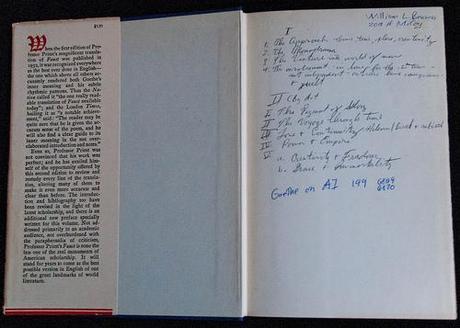 $5.75
When the first edition of Pro-
fessor Priest's magnificent transla-
tion of Faust was published in
1932, it was recognized everywhere
as the best ever done in English—
the one which above all others ac-
curately rendered both Goethe's
inner meaning and his subtle
rhythmic patterns. Thus the Na-
tion called it "the one really read-
able translation of Faust available
today"; and the London Times,
hailing it as "a notable achieve-
ment," said: "The reader may be
quite sure that he is given the ac-
curate sense of the poem, and he
will also find a clear guide to its
inner meaning in the not over-
elaborated introduction and notes."
Even so, Professor Priest was not
convinced that his work was
perfect; and he has availed him-
self of the opportunity offered by
this second edition to review and
remedy every line of the transla-
tion, altering many of them to
make it even more accurate and
clear than before. The introduc-
tion and bibliography too have
been revised in the light of the
latest scholarship, and there is an
additional new preface specially
written for this volume. Not ad-
dressed primarily to an academic
audience, not overburdened with
the paraphernalia of criticism,
Professor Priest's Faust is none the
less one of the real monuments of
American scholarship. It will
stand for years to come as the best
possible version in English of one
of the great landmarks of world
literature.
William L.
I
1. The Approach
2. The
3. The Ventures into world of man
4.
+ guilt
II
I The Pageant of
II The Voyage through Time
III Love +
IV Power + Empire
V a. Creativity + Freedom
b. Grace + Immortality
Goethe on AI 199